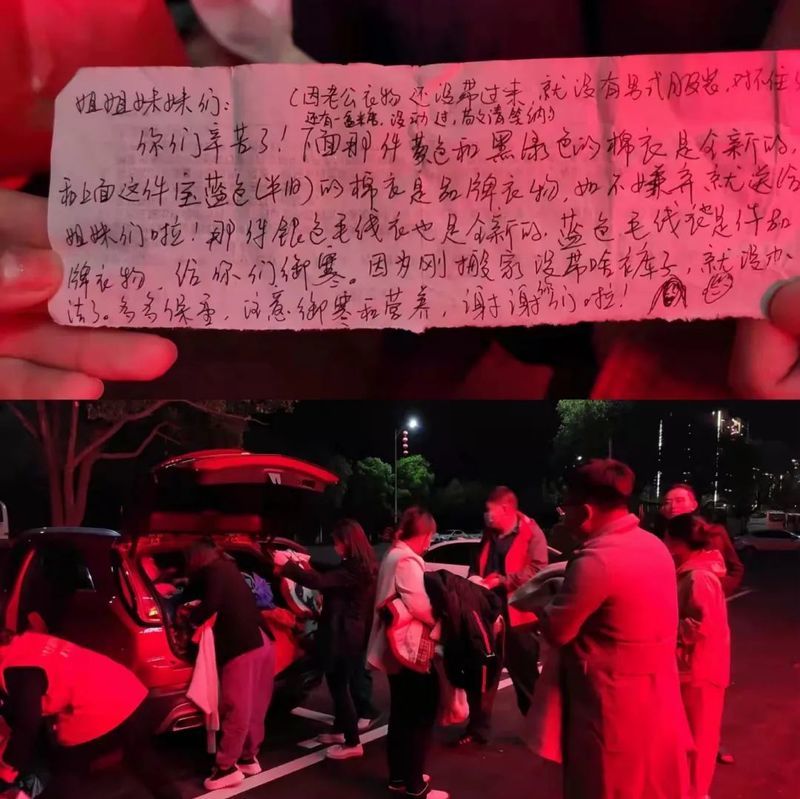 姐姐妹妹们：（因老公衣物还没带过来，就没有男式服装，对不住
还有一盒米糖，没动过，尚义清笑纳）
你们辛苦了！下面那件黄色和黑绿色的棉衣是全新的，
和上面这件宝蓝色（半旧）的棉衣是品牌衣物，如不嫌弃就送给
姐妹们啦！那件银色毛线衣也是全新的，蓝色毛线是件品
牌衣物，给你们御寒。因为刚搬家没带啥衣库子，就没办
法了。多多保重，注意御寒和营养，谢谢你们啦！